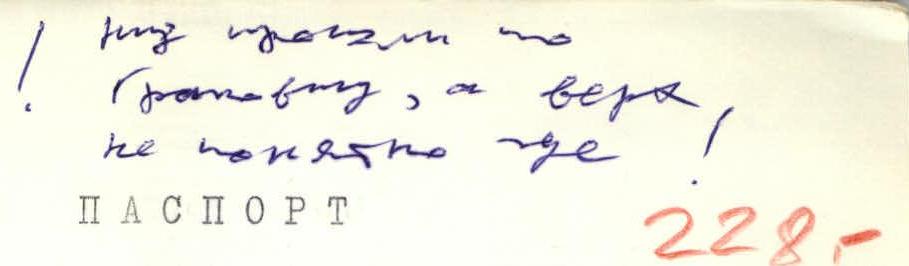 ! низ прошли по
Грановицу, а верх
не понятно где !
ПАСПОРТ
228,-